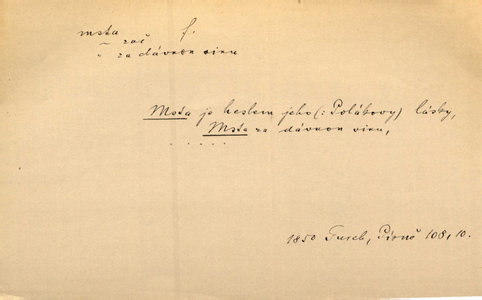 msta f.
~ zač
" za dávnou vinu
Msta je heslem jeho (: Polákovy) lásky,
Msta za dávnou vinu,
. . . . .
1850 Furch, Písně 108, 10.